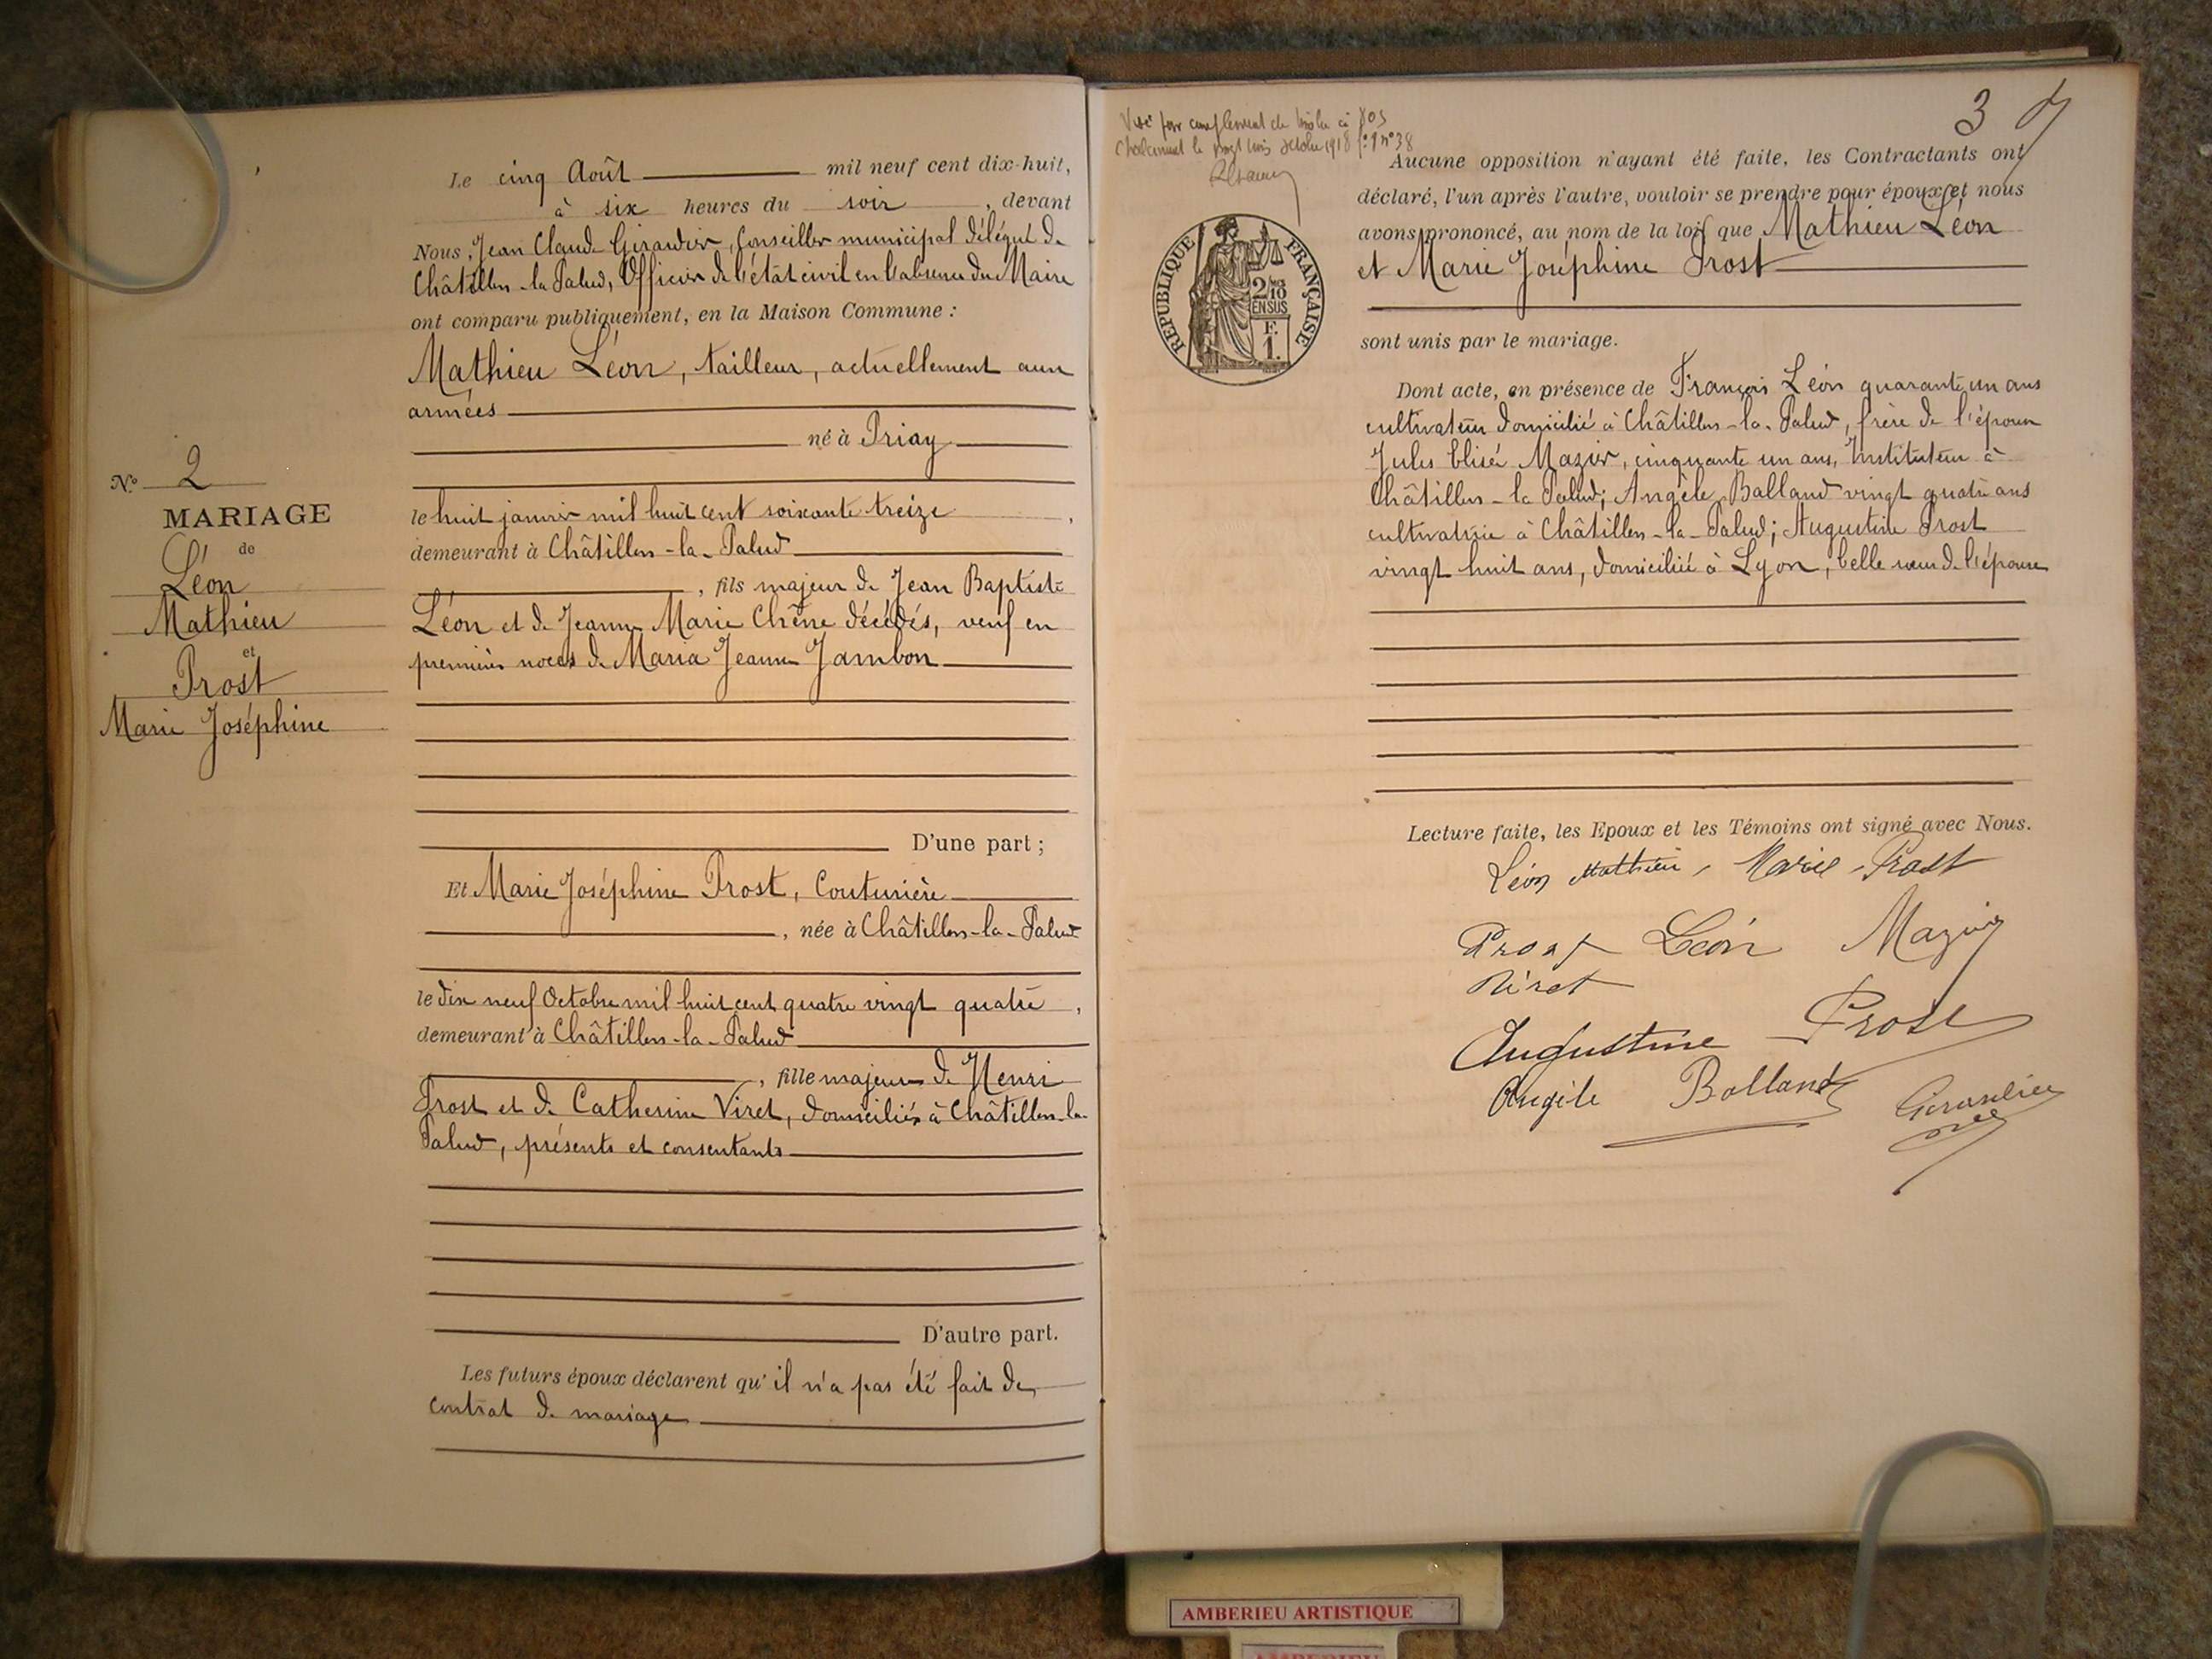 Le cinq Août mil neuf cent dix-huit,
à six heures du soir, devant
Nous, Jean Claude Girardier, Conseiller municipal délégué de
Châtillon-la-Palud, Officier de l'état civil en l'absence du Maire
ont comparu publiquement, en la Maison Commune :
Mathieu Léon, tailleur, actuellement aux
armées
né à Priay
le huit janvier mil huit cent soixante treize,
demeurant à Châtillon-la-Palud
, fils majeur de Jean Baptiste
Léon et de Jeanne Marie Chêne décédés, veuf en
premières noces de Maria Jeanne Jambon
N° 2
MARIAGE
de
Léon
Mathieu
et
Prost
Marie Joséphine
D'une part ;
Et Marie Joséphine Prost, Couturière
, née à Châtillon-la-Palud
le dix neuf Octobre mil huit cent quatre vingt quatre,
demeurant à Châtillon-la-Palud
, fille majeure de Henri
Prost et de Catherine Viret, domiciliés à Châtillon-la-
Palud, présents et consentants
D'autre part.
Les futurs époux déclarent qu'il n'a pas été fait de
contrat de mariage
3
Visé pour complément de timbre à
Chalamont le vingt trois octobre 1918 f° 9 n° 38
RÉPUBLIQUE FRANÇAISE
2/10
EN SUS
F.
1.
Aucune opposition n'ayant été faite, les Contractants ont
déclaré, l'un après l'autre, vouloir se prendre pour époux et nous
avons prononcé, au nom de la loi, que Mathieu Léon
et Marie Joséphine Prost
sont unis par le mariage.
Dont acte, en présence de François Léon quarante un ans
cultivateur domicilié à Châtillon-la-Palud, frère de l'époux
Jules Elisée Mazier, cinquante un ans, Instituteur à
Châtillon-la Palud; Angèle Balland vingt quatre ans
cultivatrice à Châtillon-la-Palud; Augustine Prost
vingt huit ans, domiciliée à Lyon, belle sœur de l'épouse
Lecture faite, les Epoux et les Témoins ont signé avec Nous.
Léon Mathieu, Marie Prost
Prost Léon Mazier
Viret
Augustine Prost
Angèle Balland Girardier
AMBERIEU ARTISTIQUE
AMBERIEU